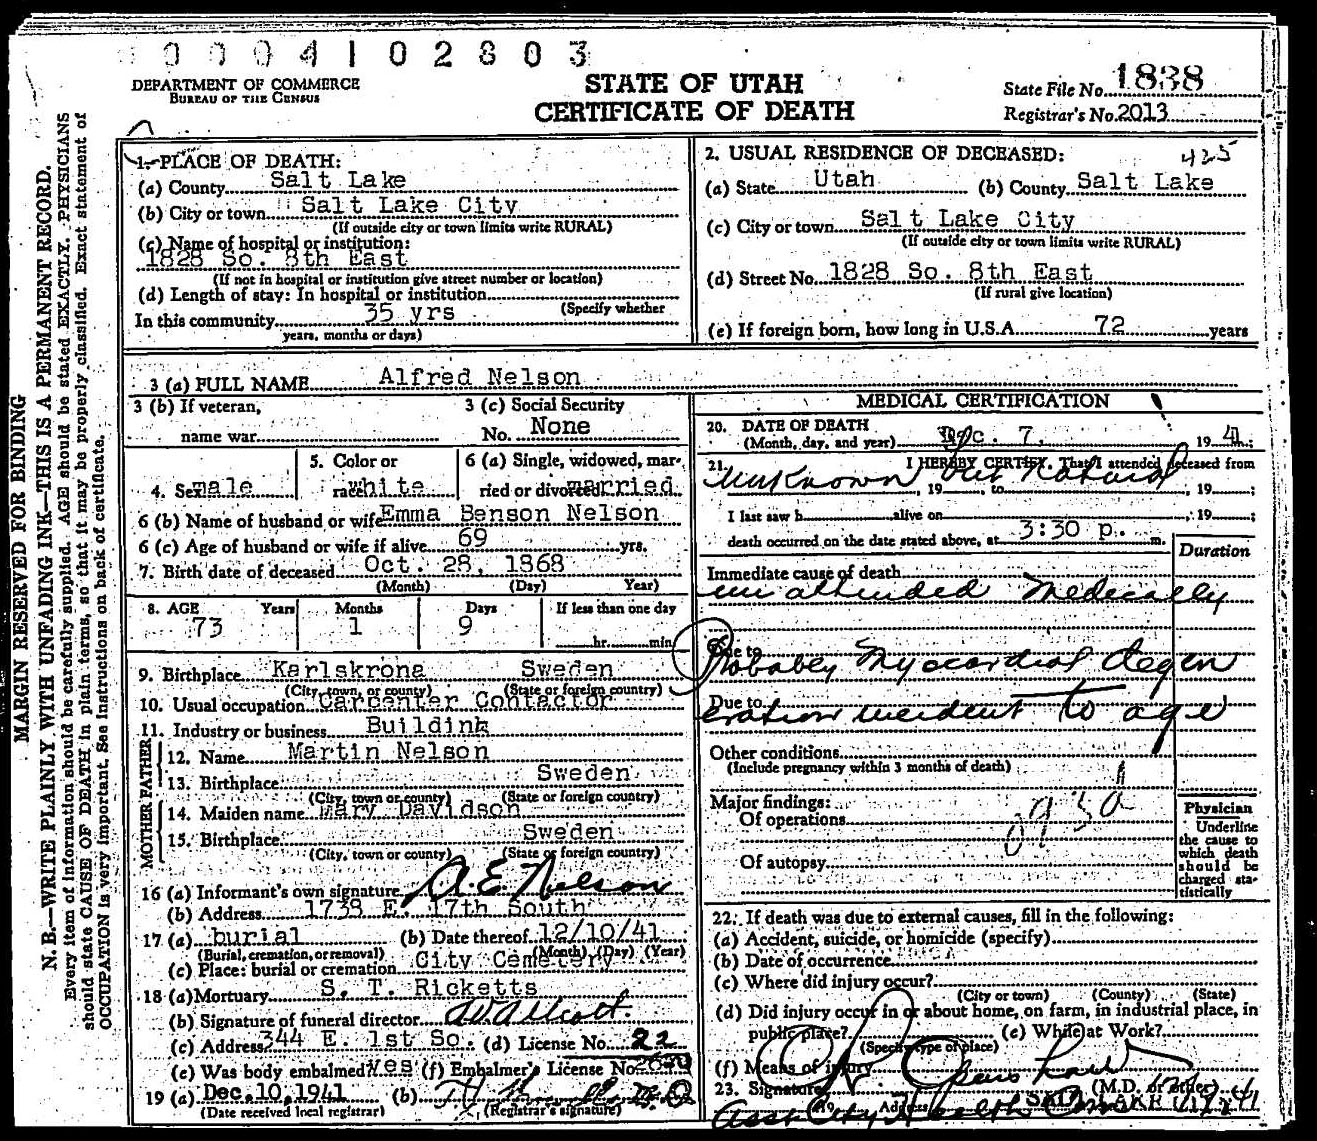 0004102803
DEPARTMENT OF COMMERCE
BUREAU OF THE CENSUS
STATE OF UTAH
CERTIFICATE OF DEATH
State File No. 1838
Registrar's No. 2013
MARGIN RESERVED FOR BINDING
N. B.—WRITE PLAINLY WITH UNFADING INK—THIS IS A PERMANENT RECORD.
Every item of information should be carefully supplied. AGE should be stated EXACTLY. PHYSICIANS
should state CAUSE OF DEATH in plain terms, so that it may be properly classified. Exact statement of
OCCUPATION is very important. See instructions on back of certificate.
1. PLACE OF DEATH:
(a) County Salt Lake
(b) City or town Salt Lake City
(If outside city or town limits write RURAL)
(c) Name of hospital or institution:
1828 So. 8th East
(If not in hospital or institution give street number or location)
(d) Length of stay: In hospital or institution
(Specify whether
In this community 35 yrs
years, months or days)
2. USUAL RESIDENCE OF DECEASED: 425
(a) State Utah (b) County Salt Lake
(c) City or town Salt Lake City
(If outside city or town limits write RURAL)
(d) Street No. 1828 So. 8th East
(If rural give location)
(e) If foreign born, how long in U.S.A 72 years
3 (a) FULL NAME Alfred Nelson
3 (b) If veteran,
name war
3 (c) Social Security
No. None
4. Sex male
5. Color or
race white
6 (a) Single, widowed, mar-
ried or divorced married
6 (b) Name of husband or wife Emma Benson Nelson
6 (c) Age of husband or wife if alive 69 yrs.
7. Birth date of deceased Oct. 28, 1868
(Month) (Day) Year)
8. AGE Years Months Days If less than one day
73 1 9 hr. min.
9. Birthplace Karlskrona Sweden
(City, town, or county) (State or foreign country)
10. Usual occupation Carpenter Contactor
11. Industry or business Building
FATHER
12. Name Martin Nelson
13. Birthplace Sweden
(City, town or county) (State or foreign country)
MOTHER
14. Maiden name Mary Davidson
15. Birthplace Sweden
(City, town or county) (State or foreign country)
16 (a) Informant's own signature A. E. Nelson
(b) Address 1738 E. 17th South
17 (a) burial (b) Date thereof 12/10/41
(Burial, cremation, or removal) (Month) (Day) (Year)
(c) Place: burial or cremation City Cemetery
18 (a) Mortuary S. T. Ricketts
(b) Signature of funeral director
(c) Address 344 E. 1st So. (d) License No. 22
(e) Was body embalmed yes (f) Embalmer's License No.
19 (a) Dec. 10, 1941 (b)
(Date received local registrar) (Registrar's signature)
MEDICAL CERTIFICATION
20. DATE OF DEATH
(Month, day, and year) Dec. 7, 19 41;
21. I HEREBY CERTIFY, That I attended deceased from
Unknown but Natural , 19 , to , 19 ;
I last saw h alive on , 19 ;
death occurred on the date stated above, at 3:30 p. m.
Duration
Immediate cause of death
unattended Medically
Due to
Probably Myocardial degen
Due to
eration incident to age
Other conditions
(Include pregnancy within 3 months of death)
Major findings:
Of operations
Of autopsy
Physician
Underline
the cause to
which death
should be
charged sta-
tistically
22. If death was due to external causes, fill in the following:
(a) Accident, suicide, or homicide (specify)
(b) Date of occurrence
(c) Where did injury occur?
(City or town) (County) (State)
(d) Did injury occur in or about home, on farm, in industrial place, in
public place? (e) While at Work?
(Specify type of place)
(f) Means of injury
23. Signature (M.D. or other)
Asst City Health SALT LAKE
Address